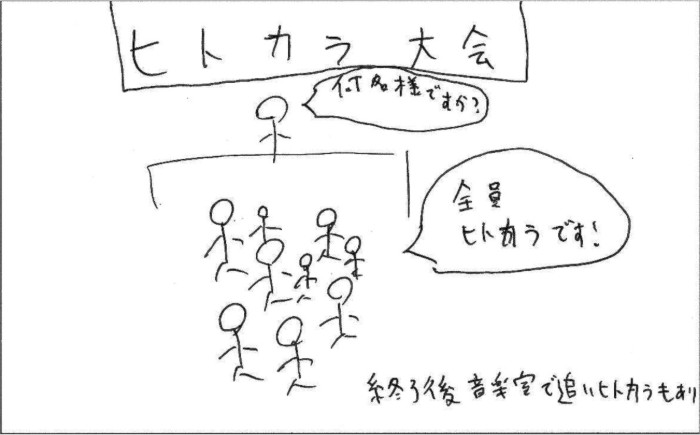 ヒトカラ大会
何名様ですか?
全員
ヒトカラです!
終了後音楽室で追いヒトカラもあり